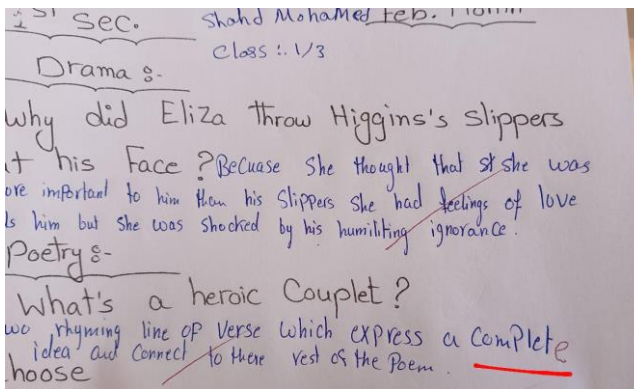 1st Sec. Shahd Mohamed Feb.
Class :. 1/3
Drama :-
why did Eliza Throw Higgins's slippers
at his Face ? Becuase She thought that st she was
ore important to him than his Slippers She had feelings of love
ds him but She was Shocked by his humiliting ignorance.
Poetry :-
What's a heroic Couplet ?
wo rhyming line of Verse which express a Complete
idea and Connect to there rest of the Poem.
hoose